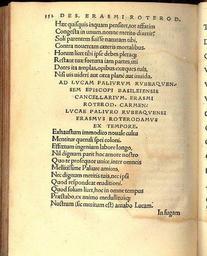 DES. ERASMI ROTEROD.
Huc quisquis inquam pensitet, tot affatim
Congesta in unum, nonne merito dixerit?
Soli parentem fuisse naturam tibi,
Contra nouercam cæteris mortalibus.
Horum luet tibi ipse debes pleraq;
Restant tuæ fortuna iam partes, uti
Dotes ita amplas, opibus exæquet tuis,
Nisi uti uideri aut orca plane aut inuida.
AD LVCAM PALIVRVM RVBEAQVEN-
SEM EPISCOPI BASILEIENSIS
CANCELLARIVM. ERASMI
ROTEROD. CARMEN:
LVCAE PALIVRO RVBEAQVENSI
ERASMVS ROTERODAMVS
EX TEMPORE.
Exhaustum immodico nouale cultu
Mentitur quoque spei coloni.
Effœtum ingenium labore longo,
Nil dignum parit hoc amore nostro
Quo te prosequor unice, inter omneis
Mellitissime Paliure amicos,
Nec dignum meritis tuis, nec ipsi
Quod respondeat eruditioni.
Quod solum licet, hoc in omne tempus
Præstabo, ex animo medullitusq;
Nostrum (sic meritum est) amabo Lucam.
In fugam